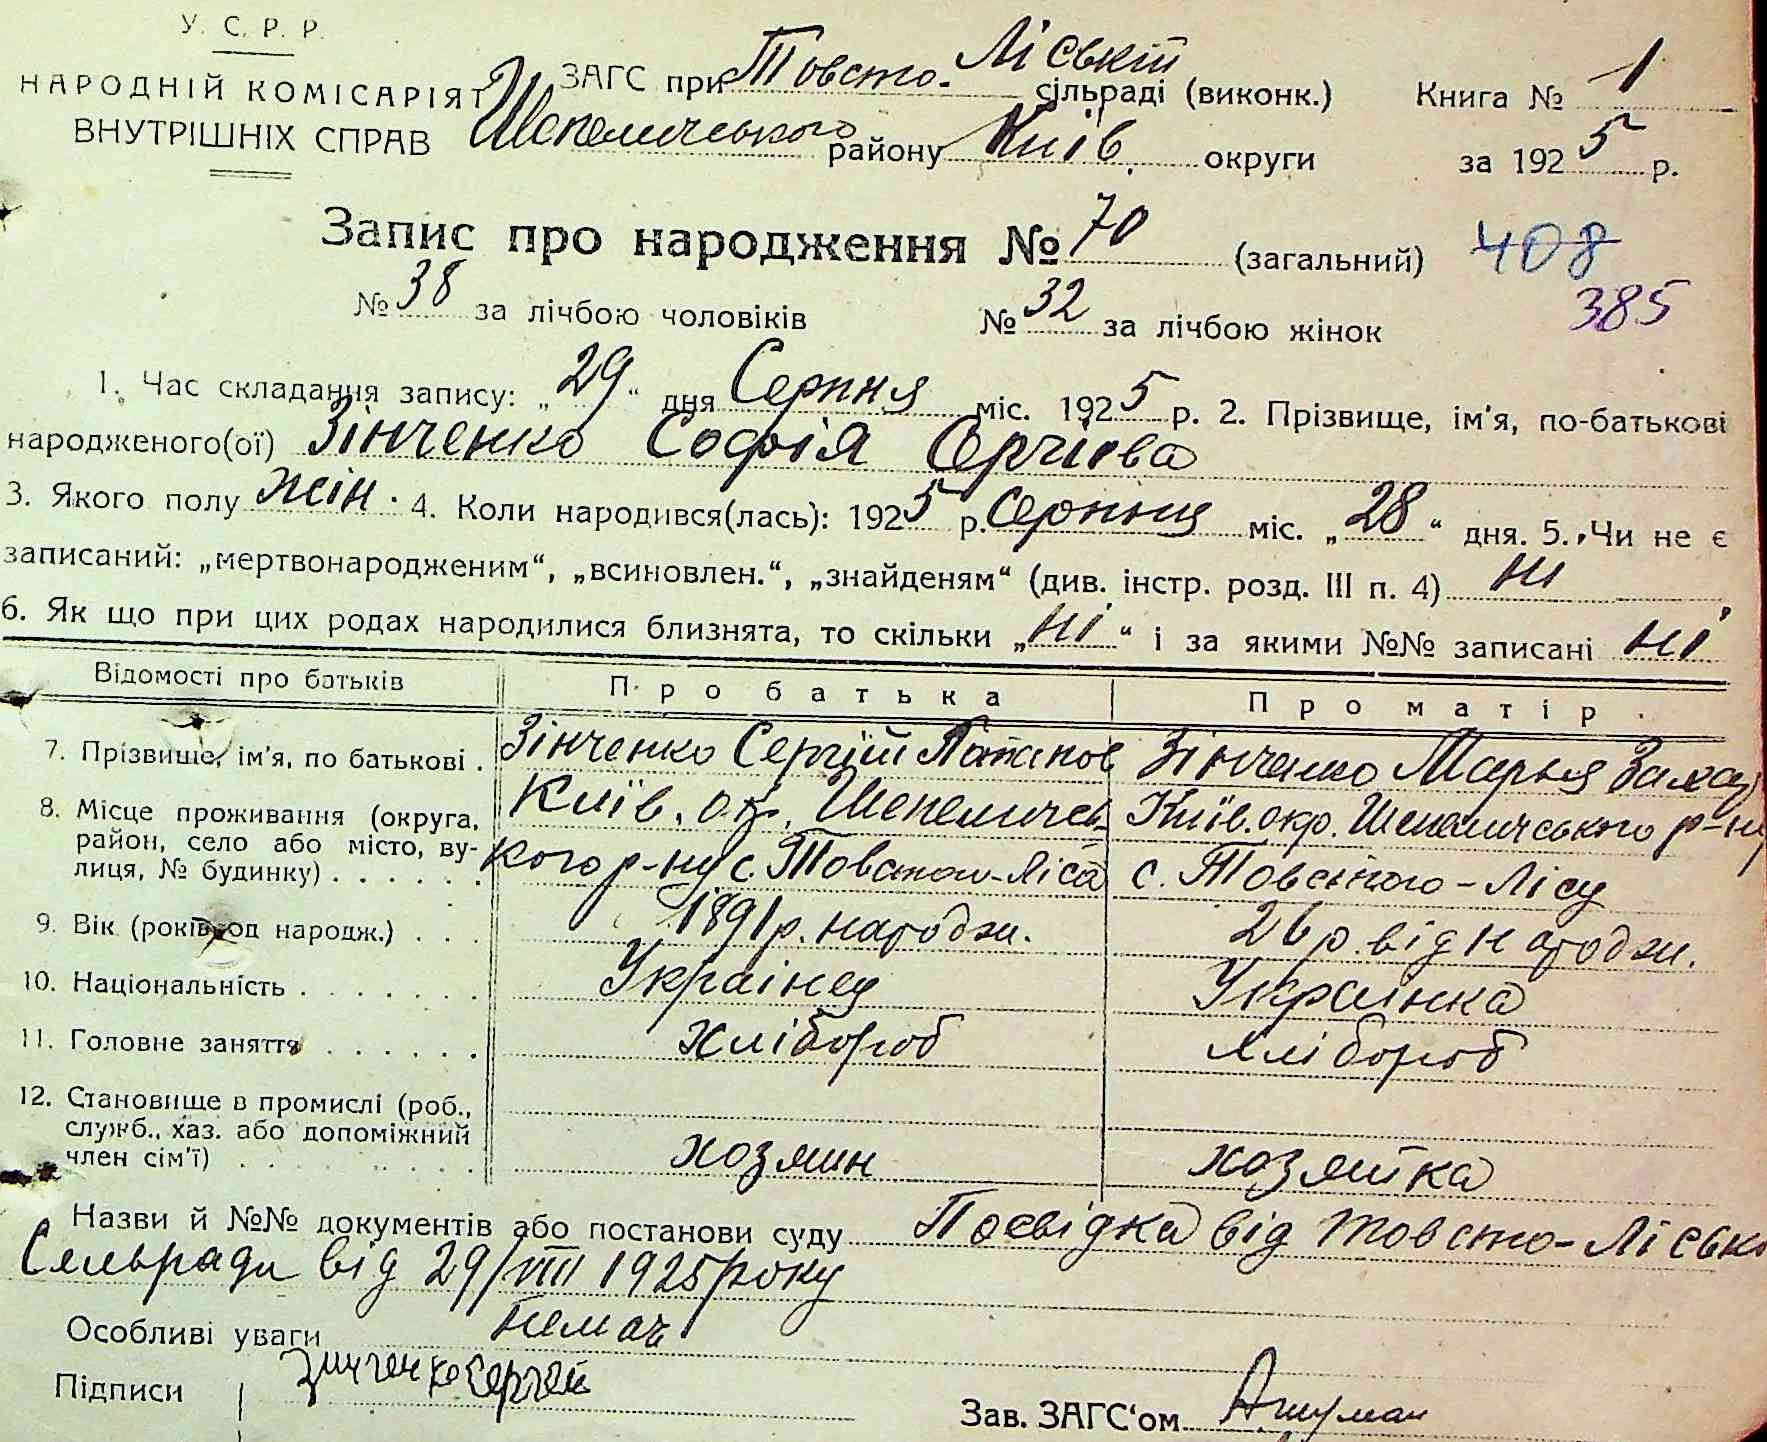 У. С. Р. Р.
НАРОДНІЙ КОМІСАРІЯТ
ВНУТРІШНІХ СПРАВ
ЗАГС при Товсто-Ліській сільраді (виконк.) Книга № 1
Шепелицького району Київ. округи за 1925 р.
Запис про народження № 70 (загальний) 408
№ 38 за лічбою чоловіків № 32 за лічбою жінок 385
1. Час складання запису: „29“ дня Серпня міс. 1925 р. 2. Прізвище, ім'я, по-батькові
народженого(ої) Зінченко Софія Сергієва
3. Якого полу жін. 4. Коли народився(лась): 1925 р. Серпня міс. „28“ дня. 5. Чи не є
записаний: „мертвонародженим“, „всиновлен.“, „знайденям“ (див. інстр. розд. III п. 4) ні
6. Як що при цих родах народилися близнята, то скільки „ні“ і за якими №№ записані ні
Відомості про батьків Про батька Про матір
7. Прізвище, ім'я, по батькові . Зінченко Сергій Потапов Зінченко Марья Захар
8. Місце проживання (округа, Київ. окр. Шепелицьк- Київ. окр. Шепелицького р-ну
район, село або місто, ву- кого р-ну с. Товстом-Ліса с. Товстого-Лісу
лиця, № будинку) . . . . . .
9. Вік (років од народж.) . . . 1891 р. народж. 26 р. від народж.
10. Національність . . . . . . . Українец Українка
11. Головне заняття . . . . . . хлібороб хлібороб
12. Становище в промислі (роб.,
служб., хаз. або допоміжний
член сім'ї) . . . . . . . . хозяин хозяйка
Назви й №№ документів або постанови суду Посвідка від Товсто-Лісько
Сельради від 29/VIII 1925 року
Особливі уваги немає
Підписи Зинченко Сергей
Зав. ЗАГС'ом